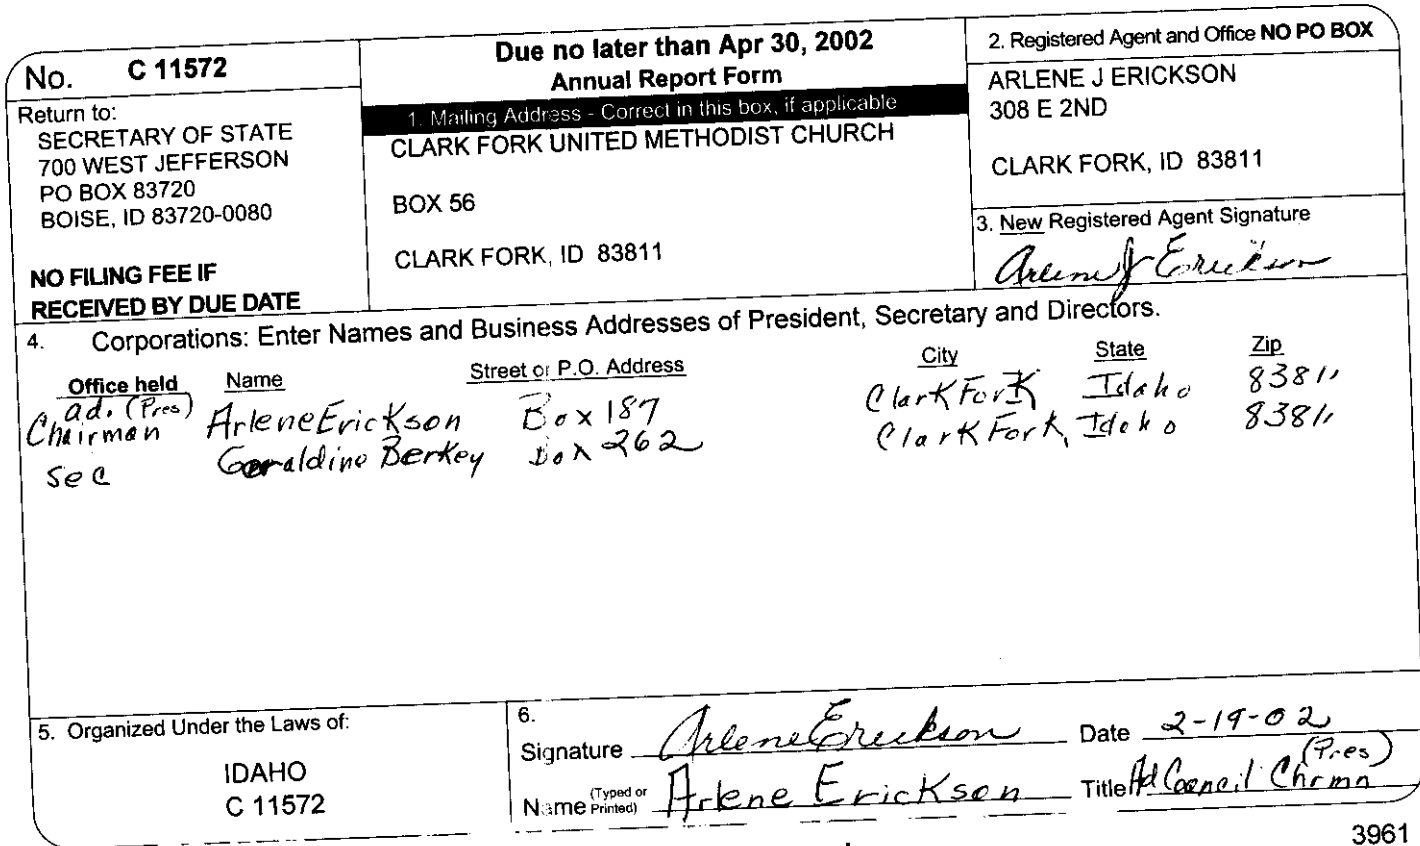 No. C 11572
Return to:
SECRETARY OF STATE
700 WEST JEFFERSON
PO BOX 83720
BOISE, ID 83720-0080
NO FILING FEE IF
RECEIVED BY DUE DATE
Due no later than Apr 30, 2002
Annual Report Form
1. Mailing Address - Correct in this box, if applicable
CLARK FORK UNITED METHODIST CHURCH
BOX 56
CLARK FORK, ID 83811
2. Registered Agent and Office NO PO BOX
ARLENE J ERICKSON
308 E 2ND
CLARK FORK, ID 83811
3. New Registered Agent Signature
Arlene J Erickson
4. Corporations: Enter Names and Business Addresses of President, Secretary and Directors.
Office held Name Street or P.O. Address City State Zip
ad. (Pres)
Chairman Arlene Erickson Box 187 Clark Fork Idaho 83811
Sec Geraldine Berkey Box 262 Clark Fork, Idaho 83811
5. Organized Under the Laws of:
IDAHO
C 11572
6.
Signature Arlene Erickson Date 2-19-02
(Pres)
Name (Typed or Printed) Arlene Erickson Title Ad Council Chrmn
3961